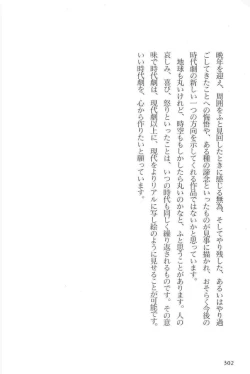 晩年を迎え、周囲をふと見回したときに感じる無為、そしてやり残した、あるいはやり過
ごしてきたことへの悔悟や、ある種の諦念といったものが見事に描かれ、おそらく今後の
時代劇の新しい一つの方向を示してくれる作品ではないかと思っています。
地球も丸いけれど、時空ももしかしたら丸いのかなと、ふと思うことがあります。人の
哀しみ、喜び、怒りといったことは、いつの時代も同じく繰り返されるものです。その意
味で時代劇は、現代劇以上に、現代をよりリアルに写し絵のように見せることが可能です。
いい時代劇を、作りたいと願っています。
302